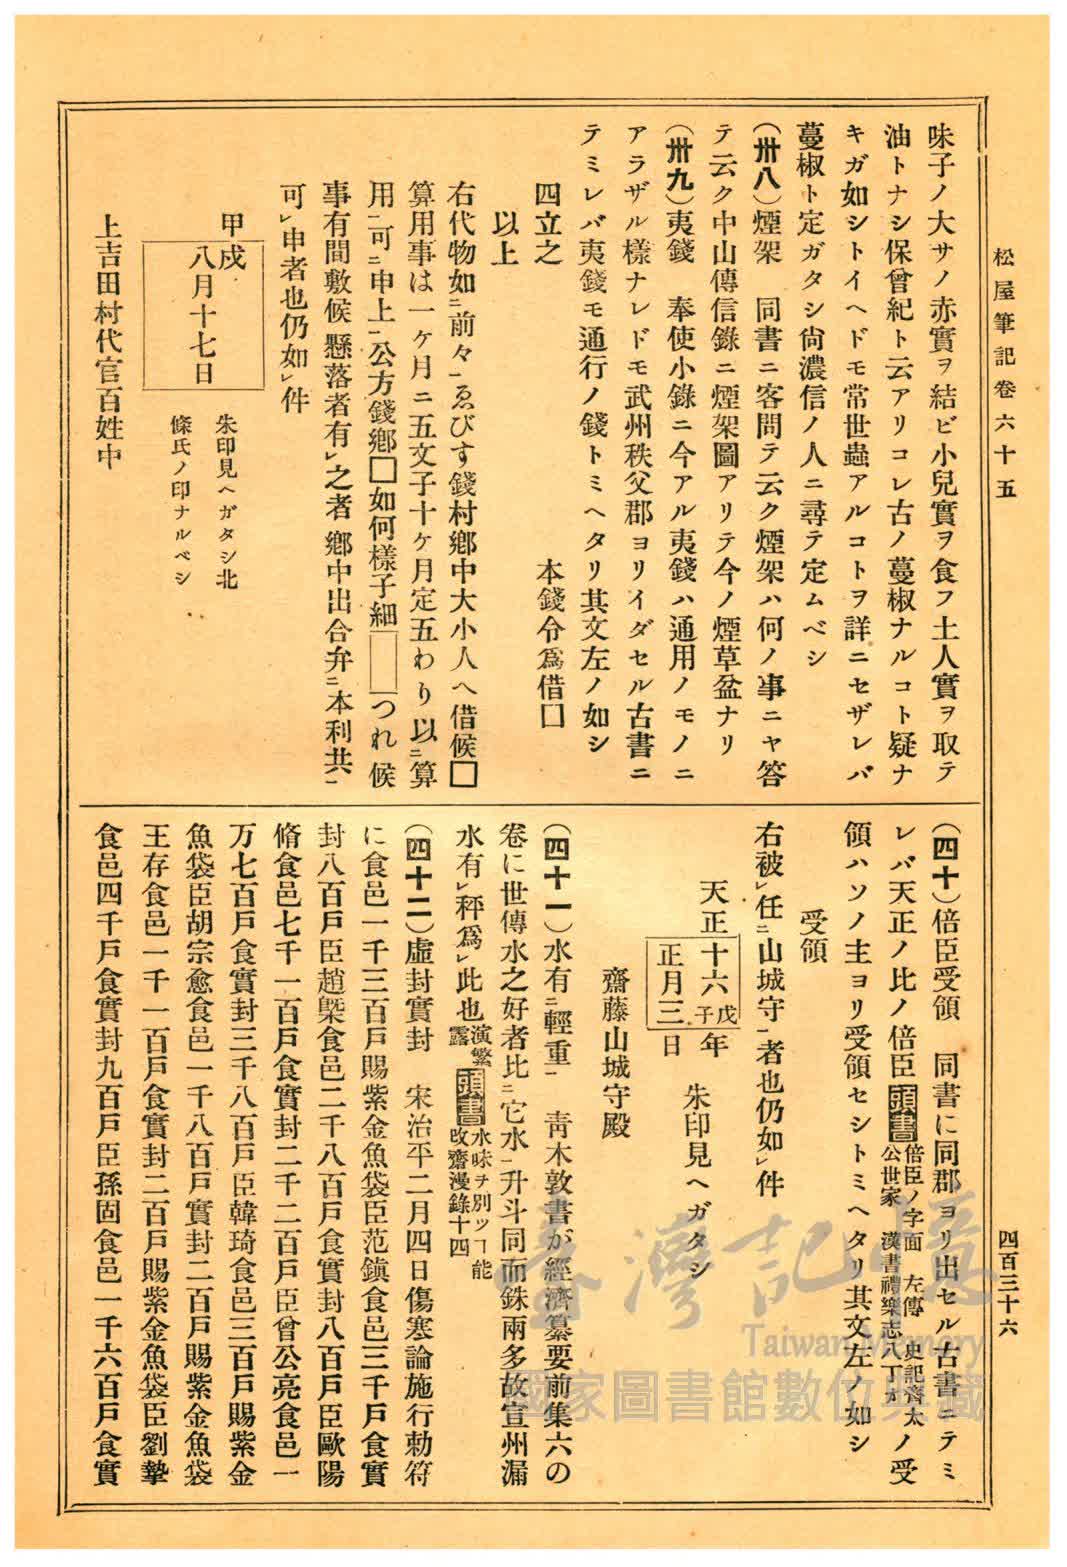 松屋筆記卷六十五
四百三十六
味子ノ大サノ赤實ヲ結ビ小兒實ヲ食フ土人實ヲ取テ
油トナシ保曾紀ト云アリコレ古ノ蔓椒ナルコト疑ナ
キガ如シトイヘドモ常世蟲アルコトヲ詳ニセザレバ
蔓椒ト定ガタシ尙濃信ノ人ニ尋テ定ムベシ
(卅八)煙架 同書ニ客問テ云ク煙架ハ何ノ事ニヤ答
テ云ク中山傳信錄ニ煙架圖アリテ今ノ煙草盆ナリ
(卅九)夷錢 奉使小錄ニ今アル夷錢ハ通用ノモノニ
アラザル樣ナレドモ武州秩父郡ヨリイダセル古書ニ
テミレバ夷錢モ通行ノ錢トミヘタリ其文左ノ如シ
四立之 本錢令爲借□
以上
右代物如ニ前々一ゑびす錢村鄉中大小人へ借候□
算用事は一ケ月ニ五文子十ケ月定五わり以ニ算
用一可ニ申上一公方錢鄉□如何樣子細□つれ候
事有間敷候懸落者有レ之者鄉中出合弁ニ本利共一
可レ申者也仍如レ件
甲戌
八月十七日
朱印見ヘガタシ北
條氏ノ印ナルベシ
上吉田村代官百姓中
(四十)倍臣受領 同書に同郡ヨリ出セル古書ニテミ
レバ天正ノ比ノ倍臣頭書倍臣ノ字面 左傳 史記齊太公世家 漢書禮樂志八丁オノ受
領ハソノ主ヨリ受領セシトミヘタリ其文左ノ如シ
受領
右被レ任ニ山城守一者也仍如レ件
天正十六戊子年
正月三日
朱印見ヘガタシ
齋藤山城守殿
(四十一)水有ニ輕重一 靑木敦書が經濟纂要前集六の
卷に世傳水之好者比ニ它水一升斗同而銖兩多故宣州漏
水有レ秤爲レ此也演繁露頭書水味ヲ別ツヿ能改齋漫錄十四
(四十二)虛封實封 宋治平二月四日傷寒論施行勅符
に食邑一千三百戶賜紫金魚袋臣范鎭食邑三千戶食實
封八百戶臣趙槩食邑二千八百戶食實封八百戶臣歐陽
脩食邑七千一百戶食實封二千二百戶臣曾公亮食邑一
万七百戶食實封三千八百戶臣韓琦食邑三百戶賜紫金
魚袋臣胡宗愈食邑一千八百戶實封二百戶賜紫金魚袋
王存食邑一千一百戶食實封二百戶賜紫金魚袋臣劉摯
食邑四千戶食實封九百戶臣孫固食邑一千六百戶食實
臺灣記憶
Taiwan Memory
國家圖書館數位典藏